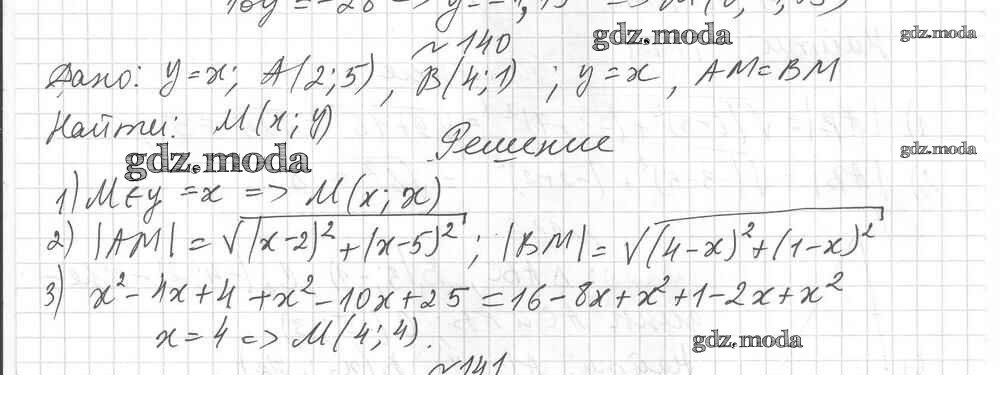 ~ 140
gdz.moda gdz.moda
Дано: y=x; A(2;5), B(4;1); y=x, AM=BM
Найти: M(x;y)
Решение
gdz.moda gdz.moda
1) M∈y=x => M(x;x)
2) |AM| = √(x-2)²+(x-5)²; |BM| = √(4-x)²+(1-x)²
3) x²-4x+4+x²-10x+25=16-8x+x²+1-2x+x²
x=4 => M(4;4).
gdz.moda
~141